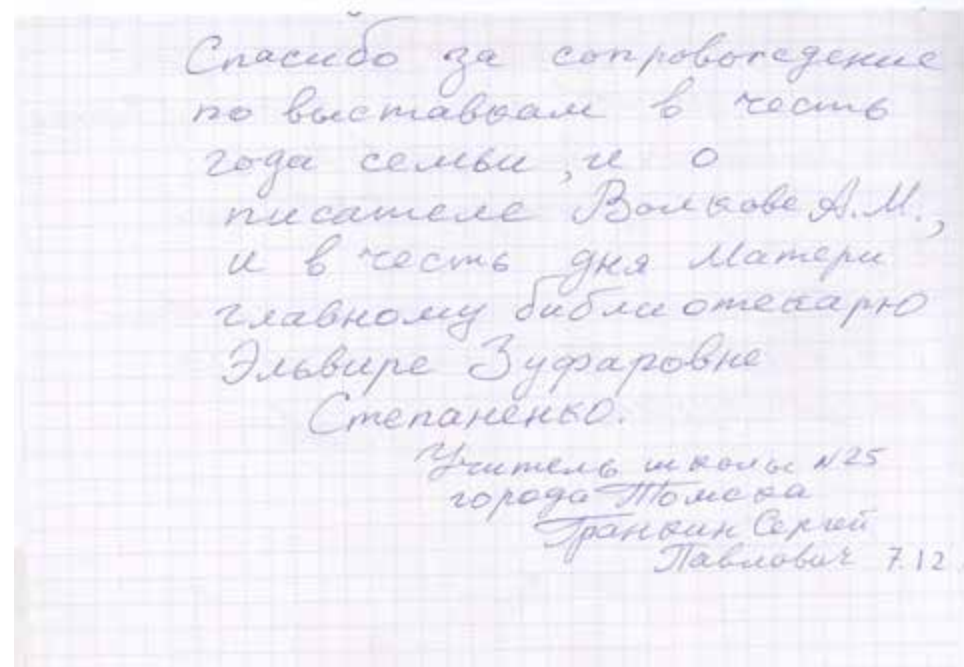 Спасибо за сопровождение
по выставкам в честь
года семьи, и о
писателе Волкове А.М.,
и в честь дня Матери
главному библиотекарю
Эльвире Зуфаровне
Степаненко.
Учитель школы №25
города Томска
Сергей
Павлович 7.12